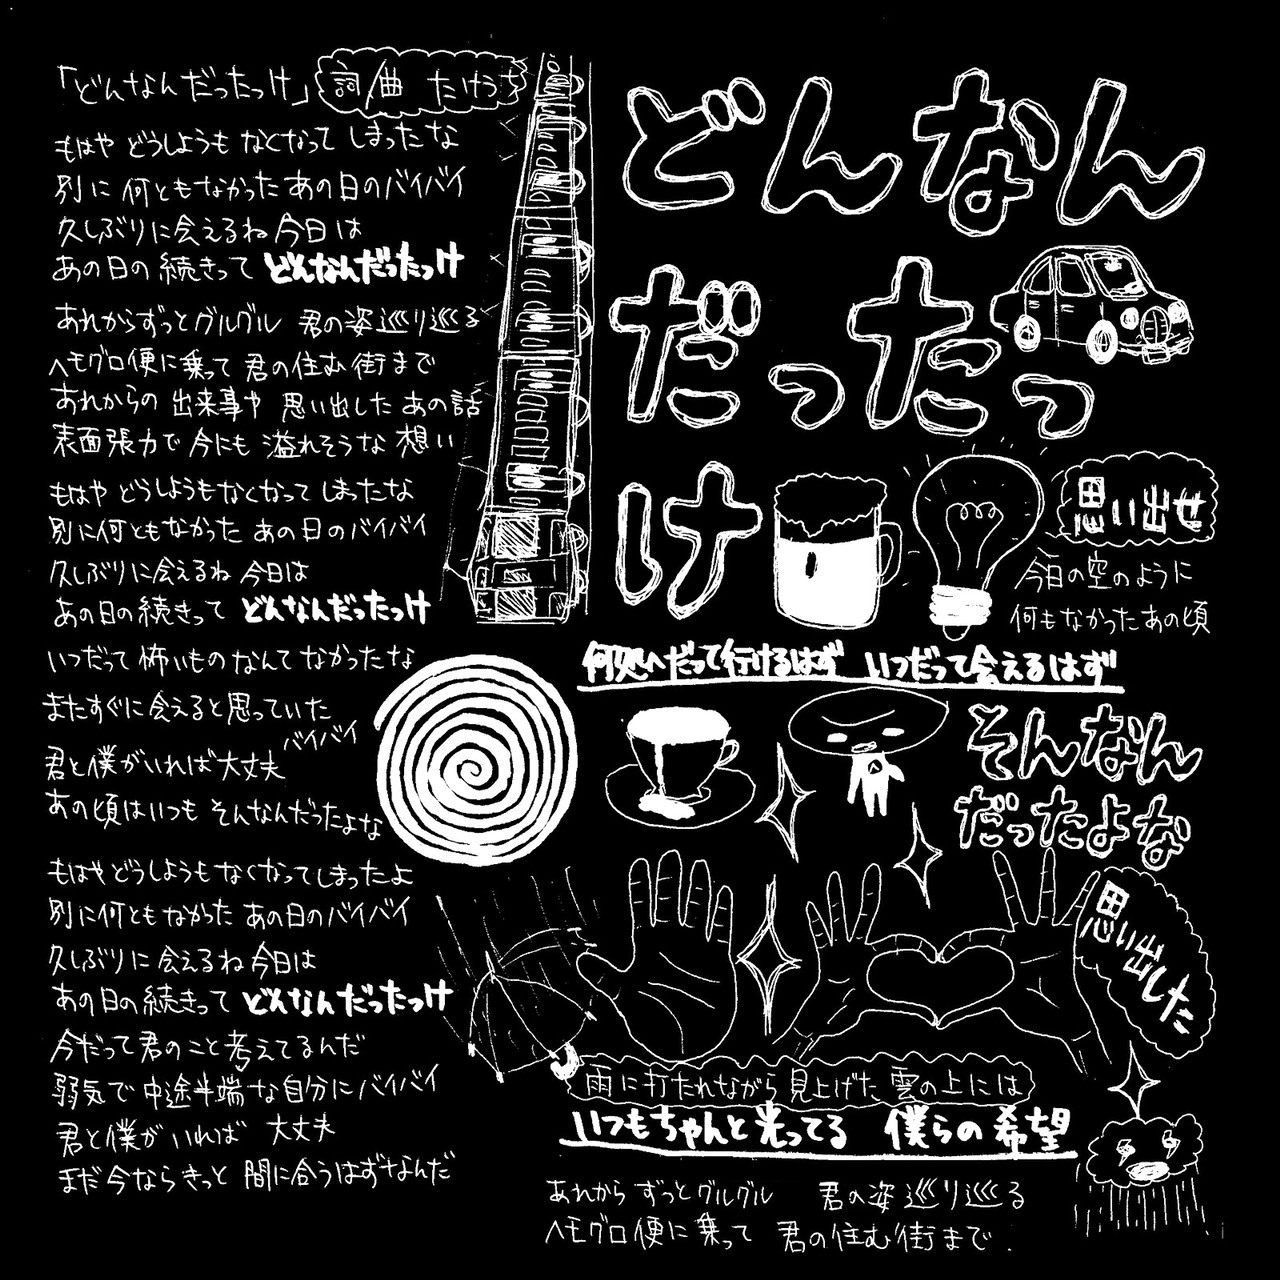 「どんなんだったっけ」 詞/曲 たけうち
もはや どうしようも なくなって しまったな
別に 何ともなかった あの日のバイバイ
久しぶりに会えるね 今日は
あの日の 続きって どんなんだったっけ
あれからずっとグルグル 君の姿巡り巡る
ヘモグロ便に乗って 君の住む街まで
あれからの 出来事や 思い出した あの話
表面張力で 今にも 溢れそうな 想い
もはや どうしようもなくなって しまったな
別に何ともなかった あの日のバイバイ
久しぶりに会えるね 今日は
あの日の続きって どんなんだったっけ
いつだって 怖いもの なんて なかったな
またすぐに会えると思っていた
バイバイ
君と僕がいれば大丈夫
あの頃はいつも そんなんだったよな
もはやどうしようもなくなってしまったよ
別に何ともなかった あの日のバイバイ
久しぶりに 会えるね今日は
あの日の続きって どんなんだったっけ
今だって君のこと考えてるんだ
弱気で 中途半端な自分にバイバイ
君と僕が いれば 大丈夫
まだ 今ならきっと 間に合うはずなんだ
どんなん
だったっ
け
思い出せ
今日の空のように
何もなかったあの頃
何処へだって行けるはず いつだって会えるはず
そんなん
だったよな
思い出した
雨に打たれながら 見上げた 雲の上には
いつもちゃんと光ってる 僕らの希望
あれから ずっとグルグル 君の姿巡り巡る
ヘモグロ便に乗って 君の住む街まで.